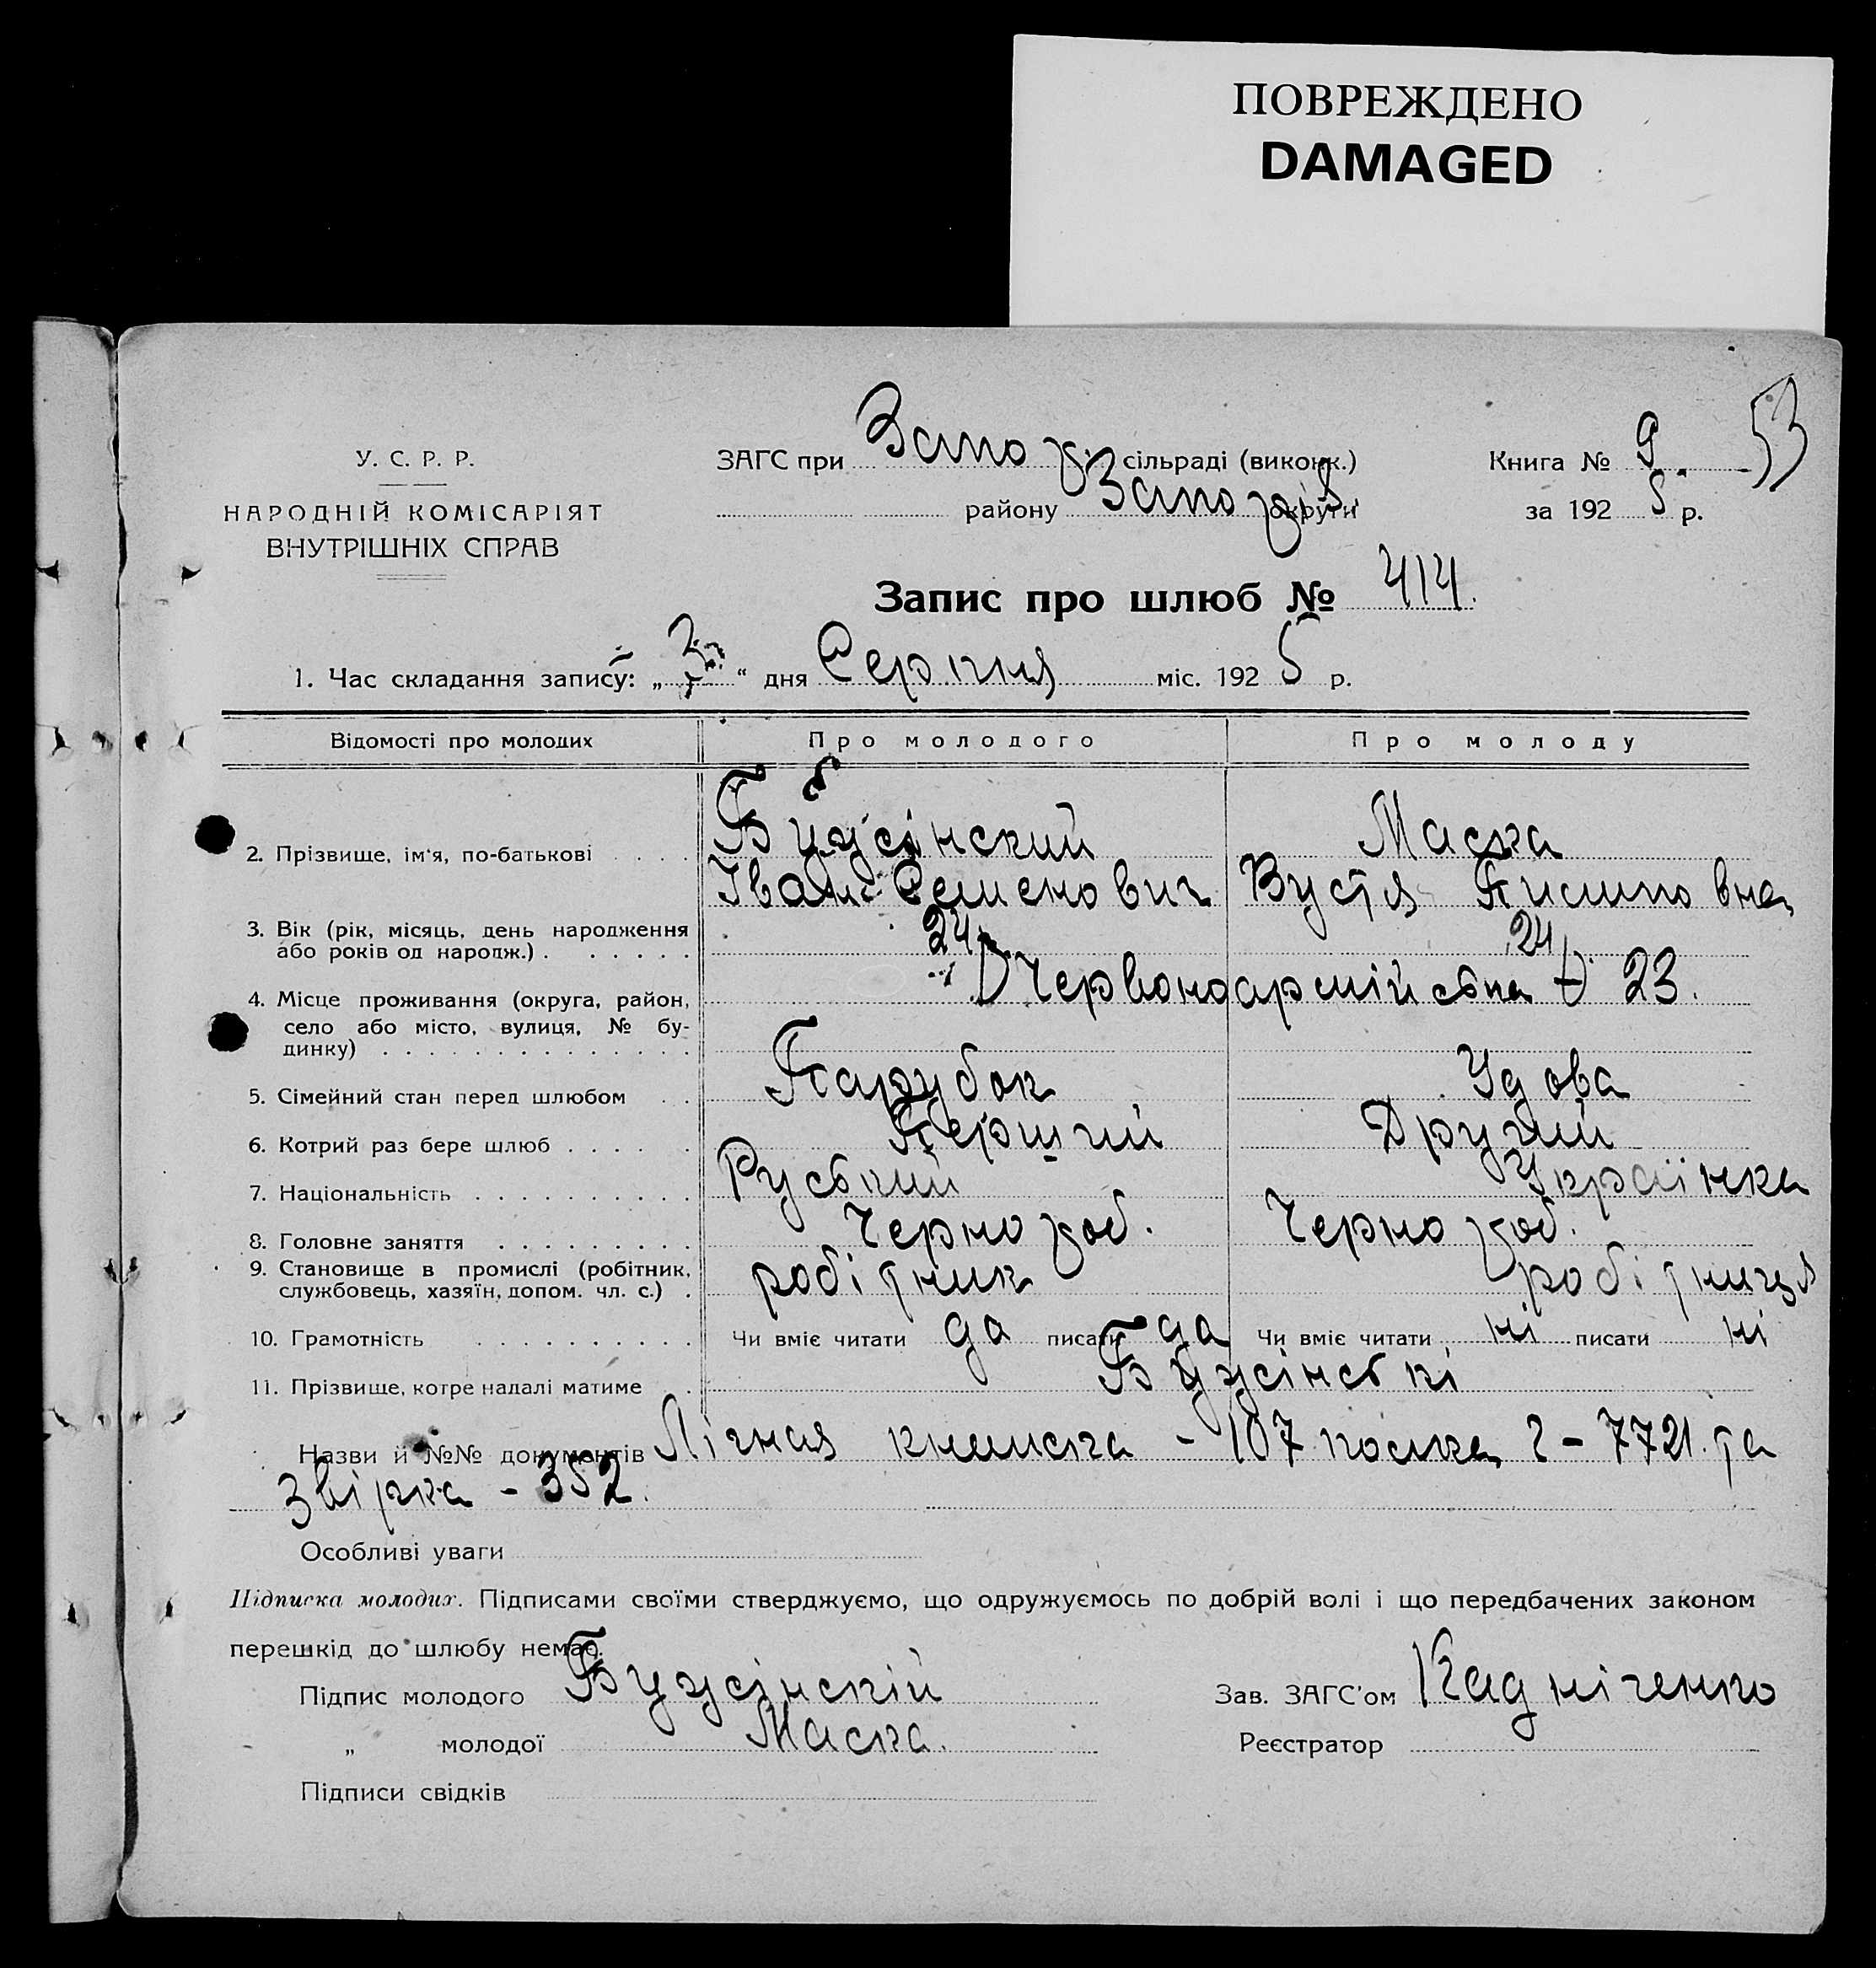 ПОВРЕЖДЕНО
DAMAGED
53
У. С. Р. Р.
НАРОДНІЙ КОМІСАРІЯТ
ВНУТРІШНІХ СПРАВ
ЗАГС при Запоріз. сільраді (виконк.)
району Запоріз. округи
Книга № 9.
за 192 5 р.
Запис про шлюб № 414.
1. Час складання запису: „ 3 “ дня Серпня міс. 192 5 р.
Відомості про молодих Про молодого Про молоду
2. Прізвище, ім'я, по-батькові Бужсінский Маска
Іван Семенович Вустя Пилиповна
3. Вік (рік, місяць, день народження 24 24
або років од народж.)
4. Місце проживання (округа, район, Червоноармійська 23.
село або місто, вулиця, № бу-
динку)
5. Сімейний стан перед шлюбом Парубок Удова
6. Котрий раз бере шлюб Перший Другий
7. Національність Руський Українка
8. Головне заняття Чернороб. Чернороб.
9. Становище в промислі (робітник, робітник робітниця
службовець, хазяїн, допом. чл. с.)
10. Грамотність Чи вміє читати да писати да Чи вміє читати ні писати ні
11. Прізвище, котре надалі матиме Бужсінські
Назви й №№ документів Лічная книжка - 107 - 7721. та
звірка - 352.
Особливі уваги
Підписка молодих. Підписами своїми стверджуємо, що одружуємось по добрій волі і що передбачених законом
перешкід до шлюбу немає.
Підпис молодого Бужсінскій Зав. ЗАГС'ом Кадніченко
„ молодої Маска. Реєстратор
Підписи свідків